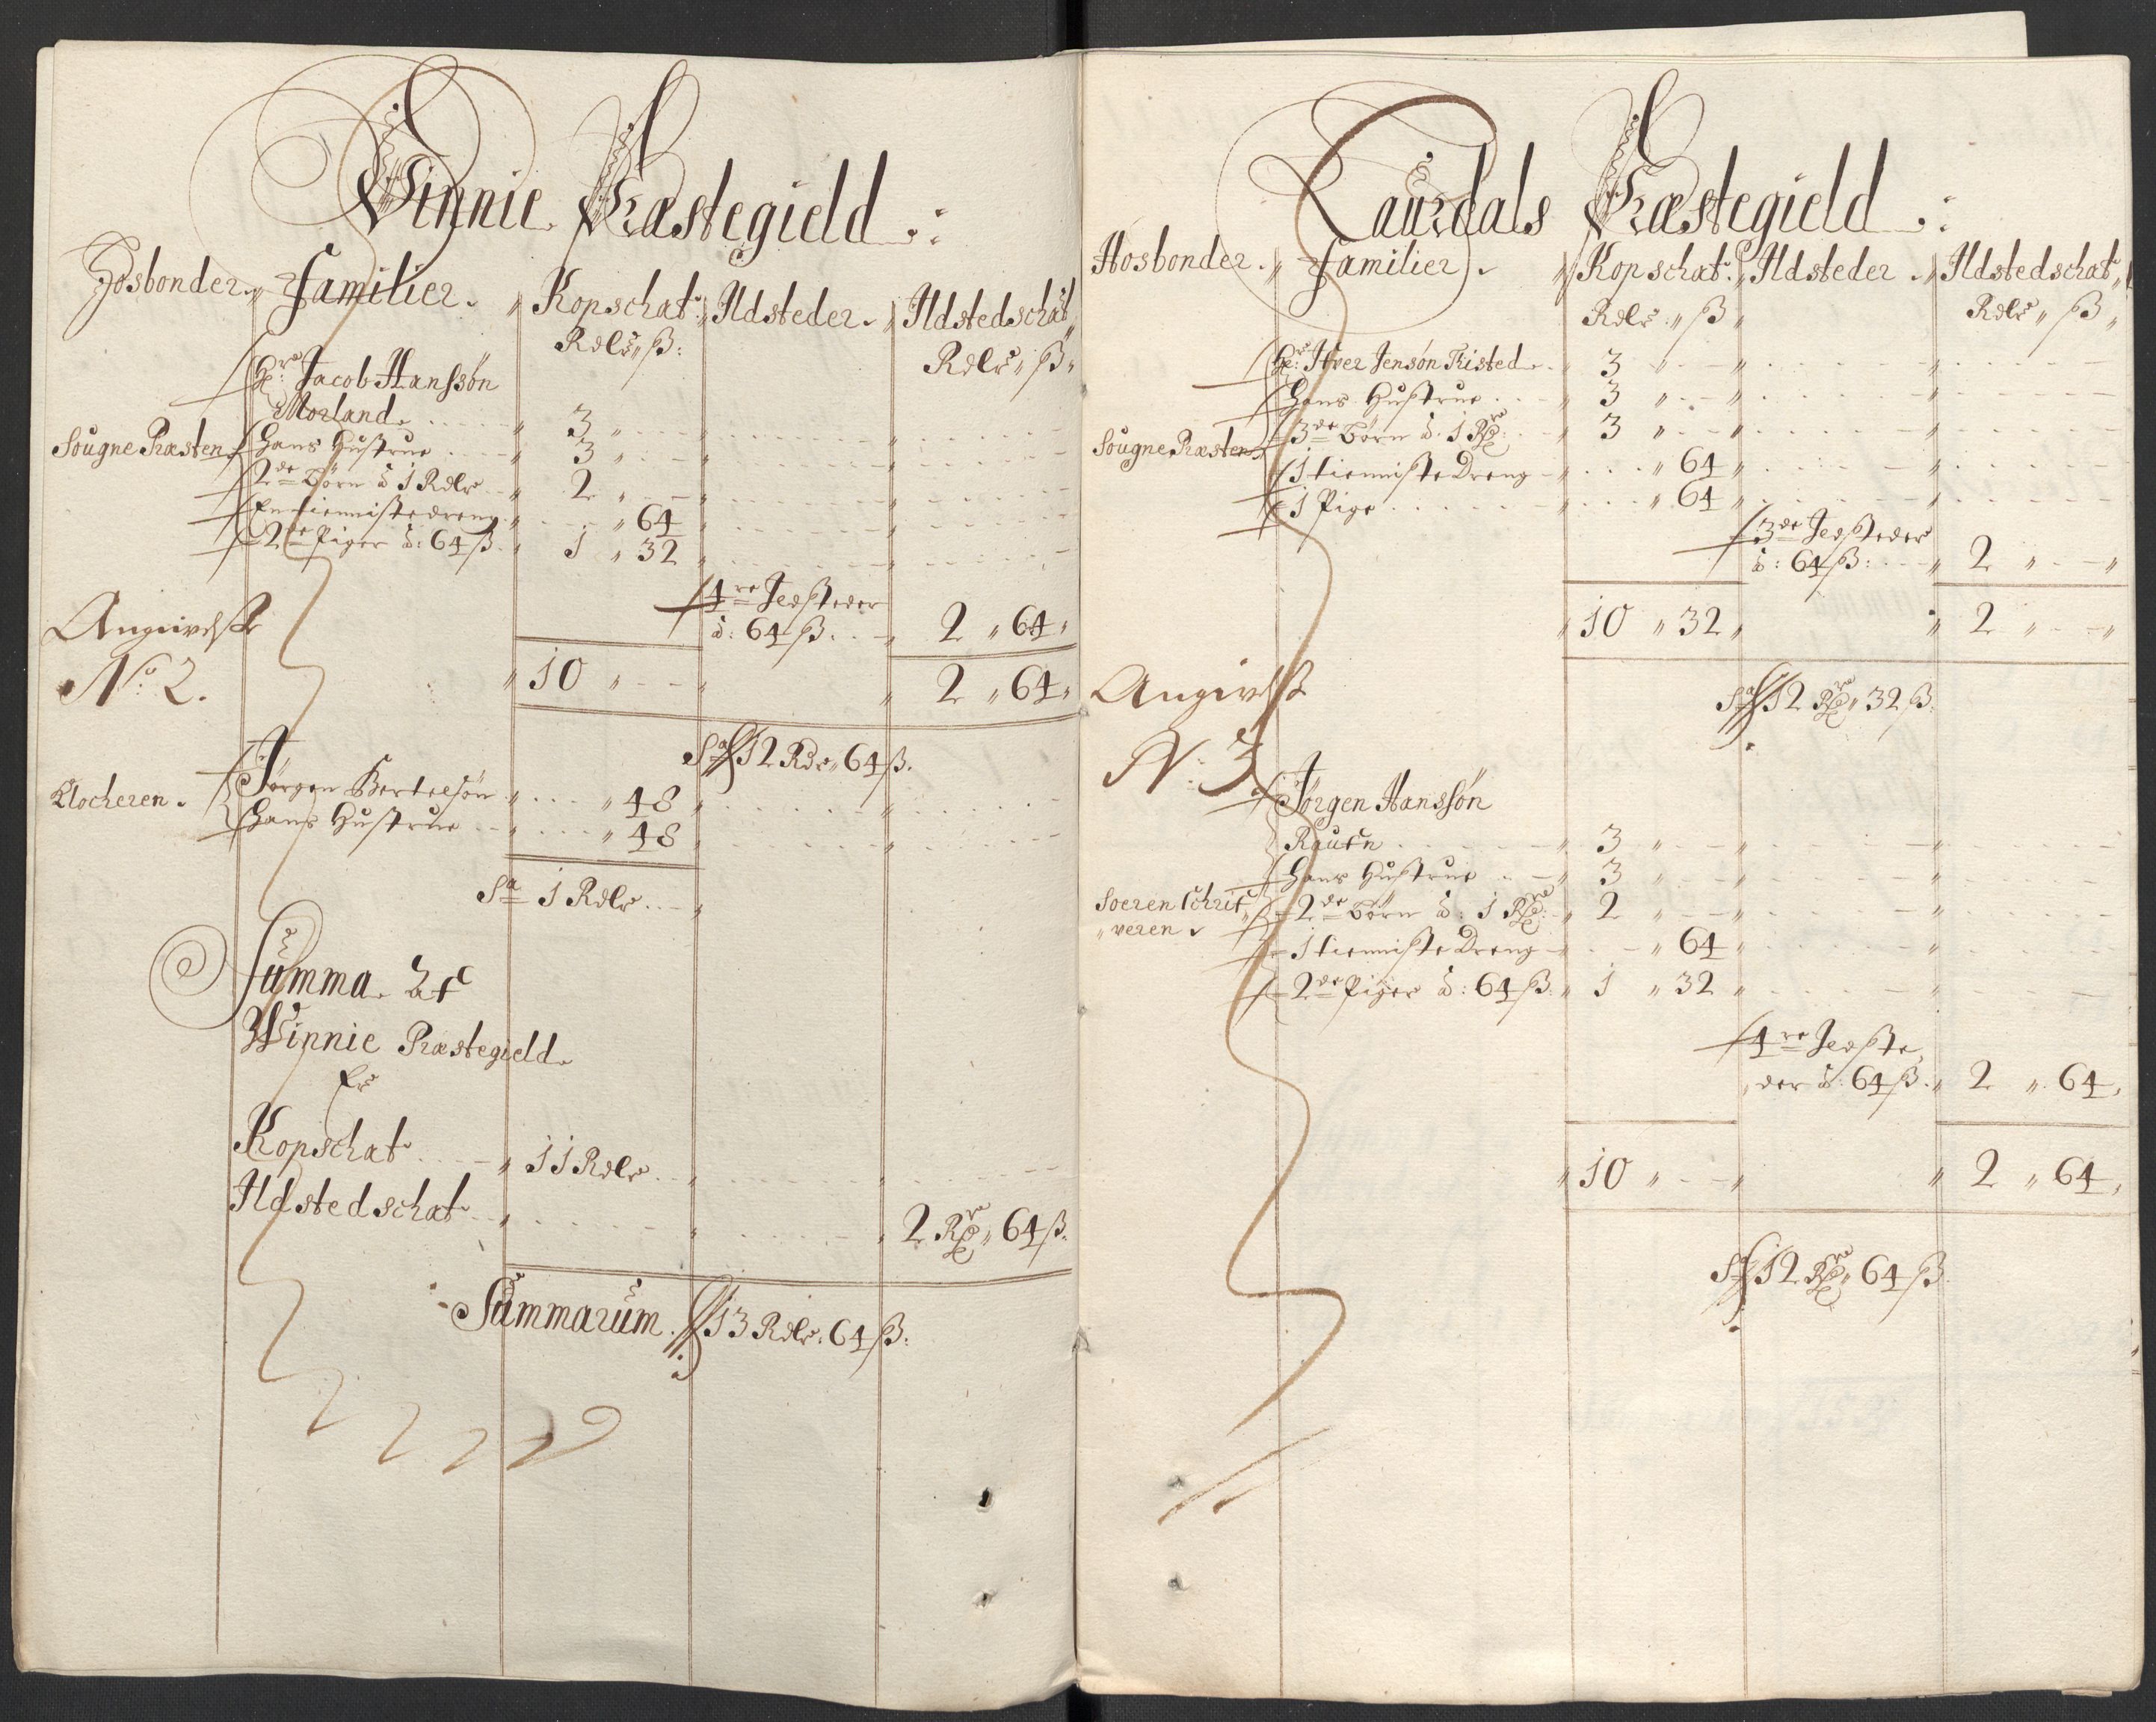 Winnie Præstegield
Hosbonder. Familier. Kopschat. Ildsteder. Ildstedschat
Rdlr ß: Rdlr ß.
Hr: Jacob Hanssøn
Morland 3
Sougne Præsten Hans Hustrue 3
2de Børn à 1 Rdlr 2
En tienniste dreng 64
2de Piger à: 64 ß. 1 32
4re Jldsteder
à: 64 ß. 2 64
Angivelße
No: 2. 10 2 64
Sa 12 Rdr 64 ß.
Klocheren. Jørgen Bertelsøn 48
Hans Hustrue 48
Sa 1 Rdlr
Summa af
Winnie Præstegield
Er
Kopschat 11 Rdlr
Ildstedschat 2 Rdr 64 ß.
Summarum 13 Rdlr. 64 ß.
Laurdals Præstegield
Hosbonder. Familier. Kopschat. Ildsteder. Ildstedschat
Rdlr ß Rdlr ß
Hr: Ifver Jensøn Tristed 3
Hans Hustrue 3
Sougne Præsten 3de Børn à. 1 Rdr 3
1 tienniste Dreng 64
1 Pige 64
3de Jldsteder
à: 64 ß: 2
10 32 2
Sa 12 Rdr 32 ß.
Angivelße
N: 3
Jørgen Hanssøn
Rauen 3
Hans Hustrue 3
Soeren schrif 2de Børn à: 1 Rdr: 2
veren 1 tienniste Dreng 64
2de Piger à: 64 ß. 1 32
4re Jldste
der à: 64 ß. 2 64
10 2 64
Sa 12 Rdr 64 ß